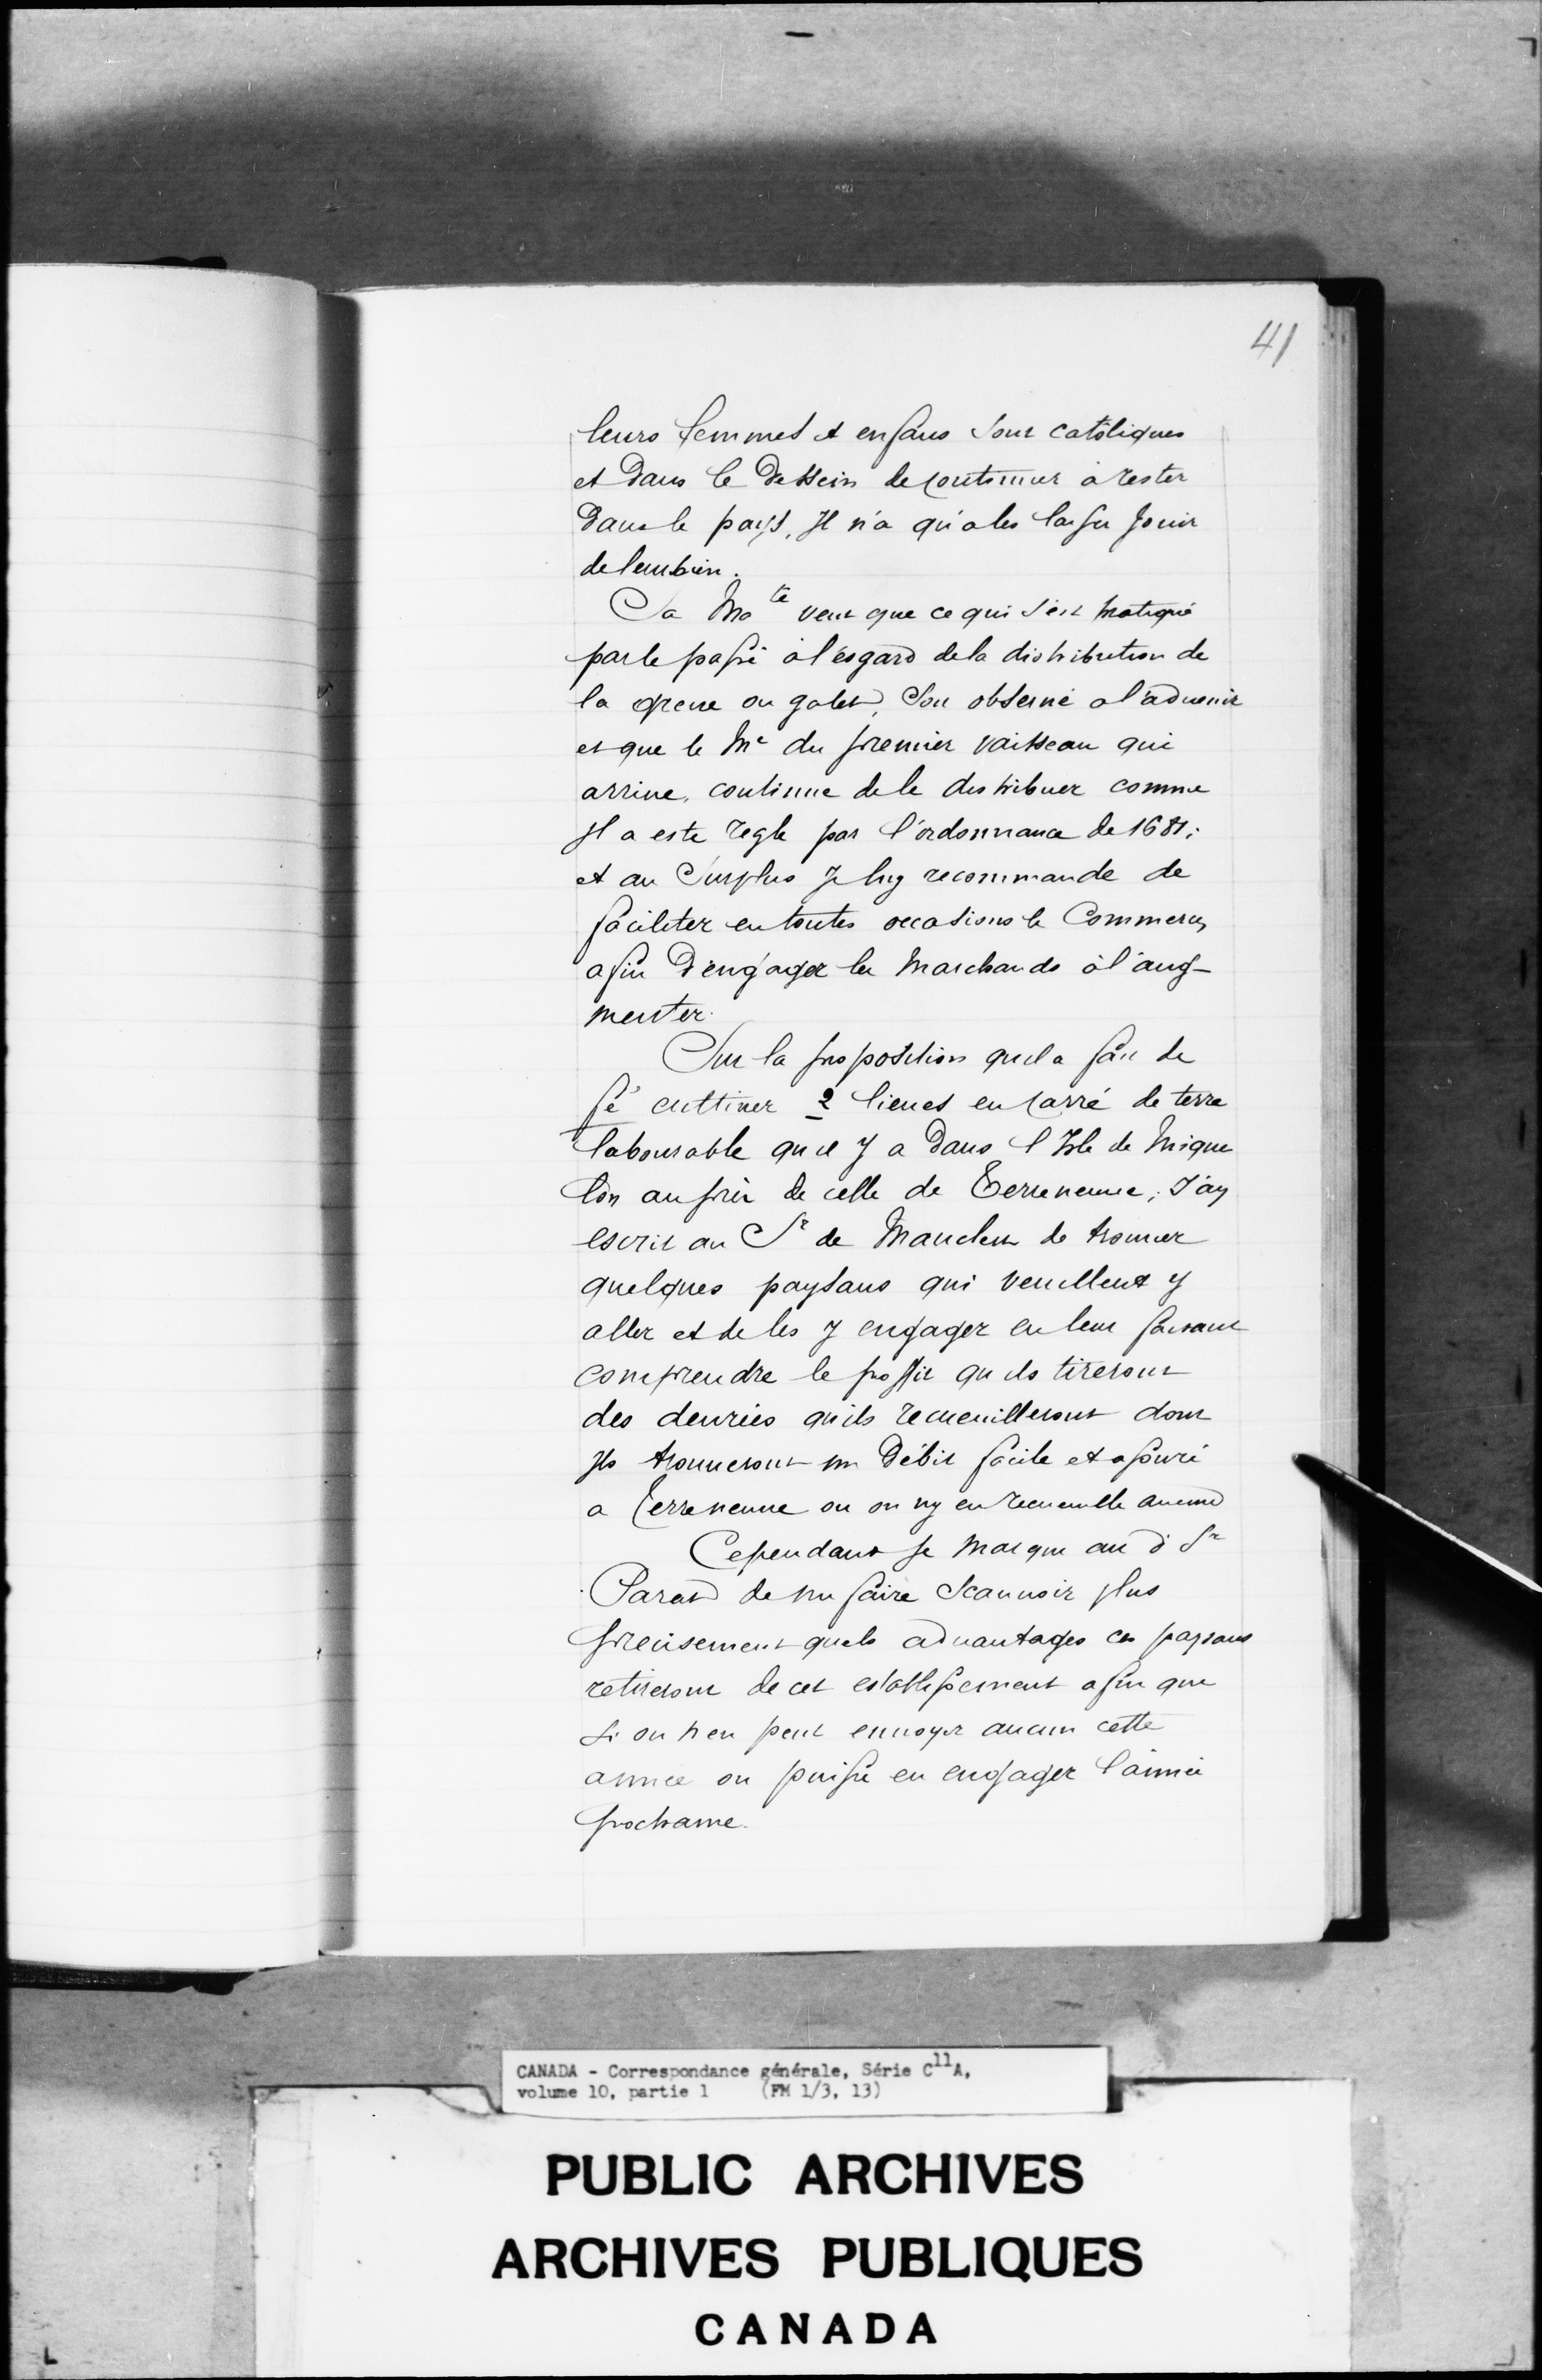 41
leurs femmes et enfans sont catoliques
et dans le dessein de continuer à rester
dans le pays, Il n'a qu'a les laisser jouir
de leur bien.
Sa Ma te veut que ce qui s'est pratiqué
par le passé à l'esgard de la distribution de
la greve ou galet, soit observé a l'advenir
et que le Me du premier vaisseau qui
arrive, continue de le distribuer comme
Il a este reglé par l'ordonnance de 1681;
et au surplus Je luy recommande de
faciliter en toutes occasions le Commerce,
afin d'engager les marchands à l'aug-
menter.
Sur la proposition qu'il a fait de
fe cultiver 2 lieues en carré de terre
labourable qu'il y a dans l'Isle de Mique
lon auprès de celle de Terreneuve; J'ay
escrit au Sr de Mauclerc de trouver
quelques paysans qui veuillent y
aller et de les y engager en leur faisant
comprendre le proffit qu'ils tireront
des denrées qu'ils recueuilleront dont
Ils trouveront un débit facile et assuré
a Terreneuve ou on ny en recueuille aucune
Cependant Je marque au d. Sr
Parat de me faire scauvoir plus
precisement quels advantages ces paysans
retireront de cet establissement afin que
si on n'en peut envoyer aucun cette
année on puisse en engager l'année
prochaine.
CANADA - Correspondance générale, Série C11A,
volume 10, partie 1 (FM 1/3, 13)
PUBLIC ARCHIVES
ARCHIVES PUBLIQUES
CANADA